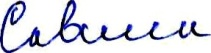 Савини